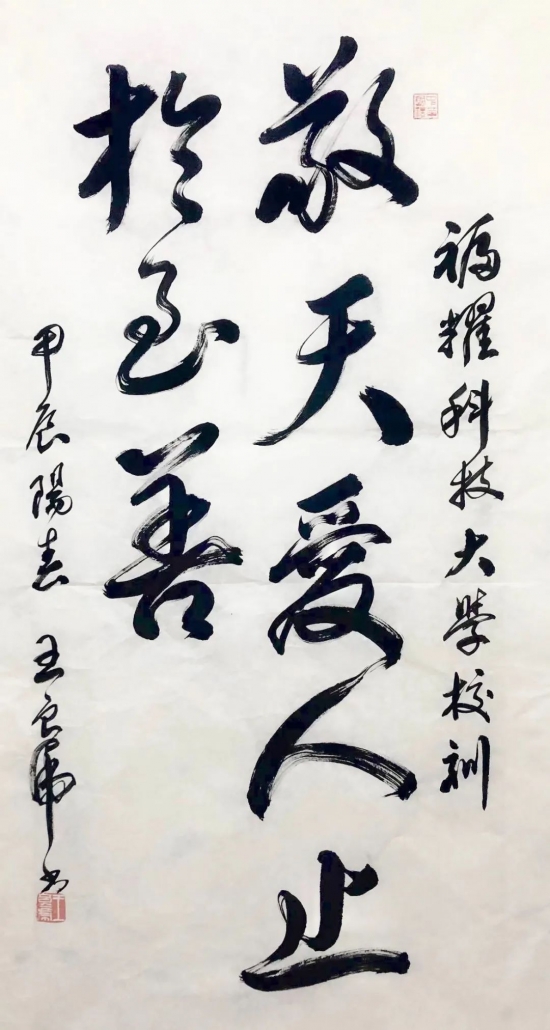 福耀科技大學校訓
敬天愛人止
於至善
甲辰陽春 王良虎書